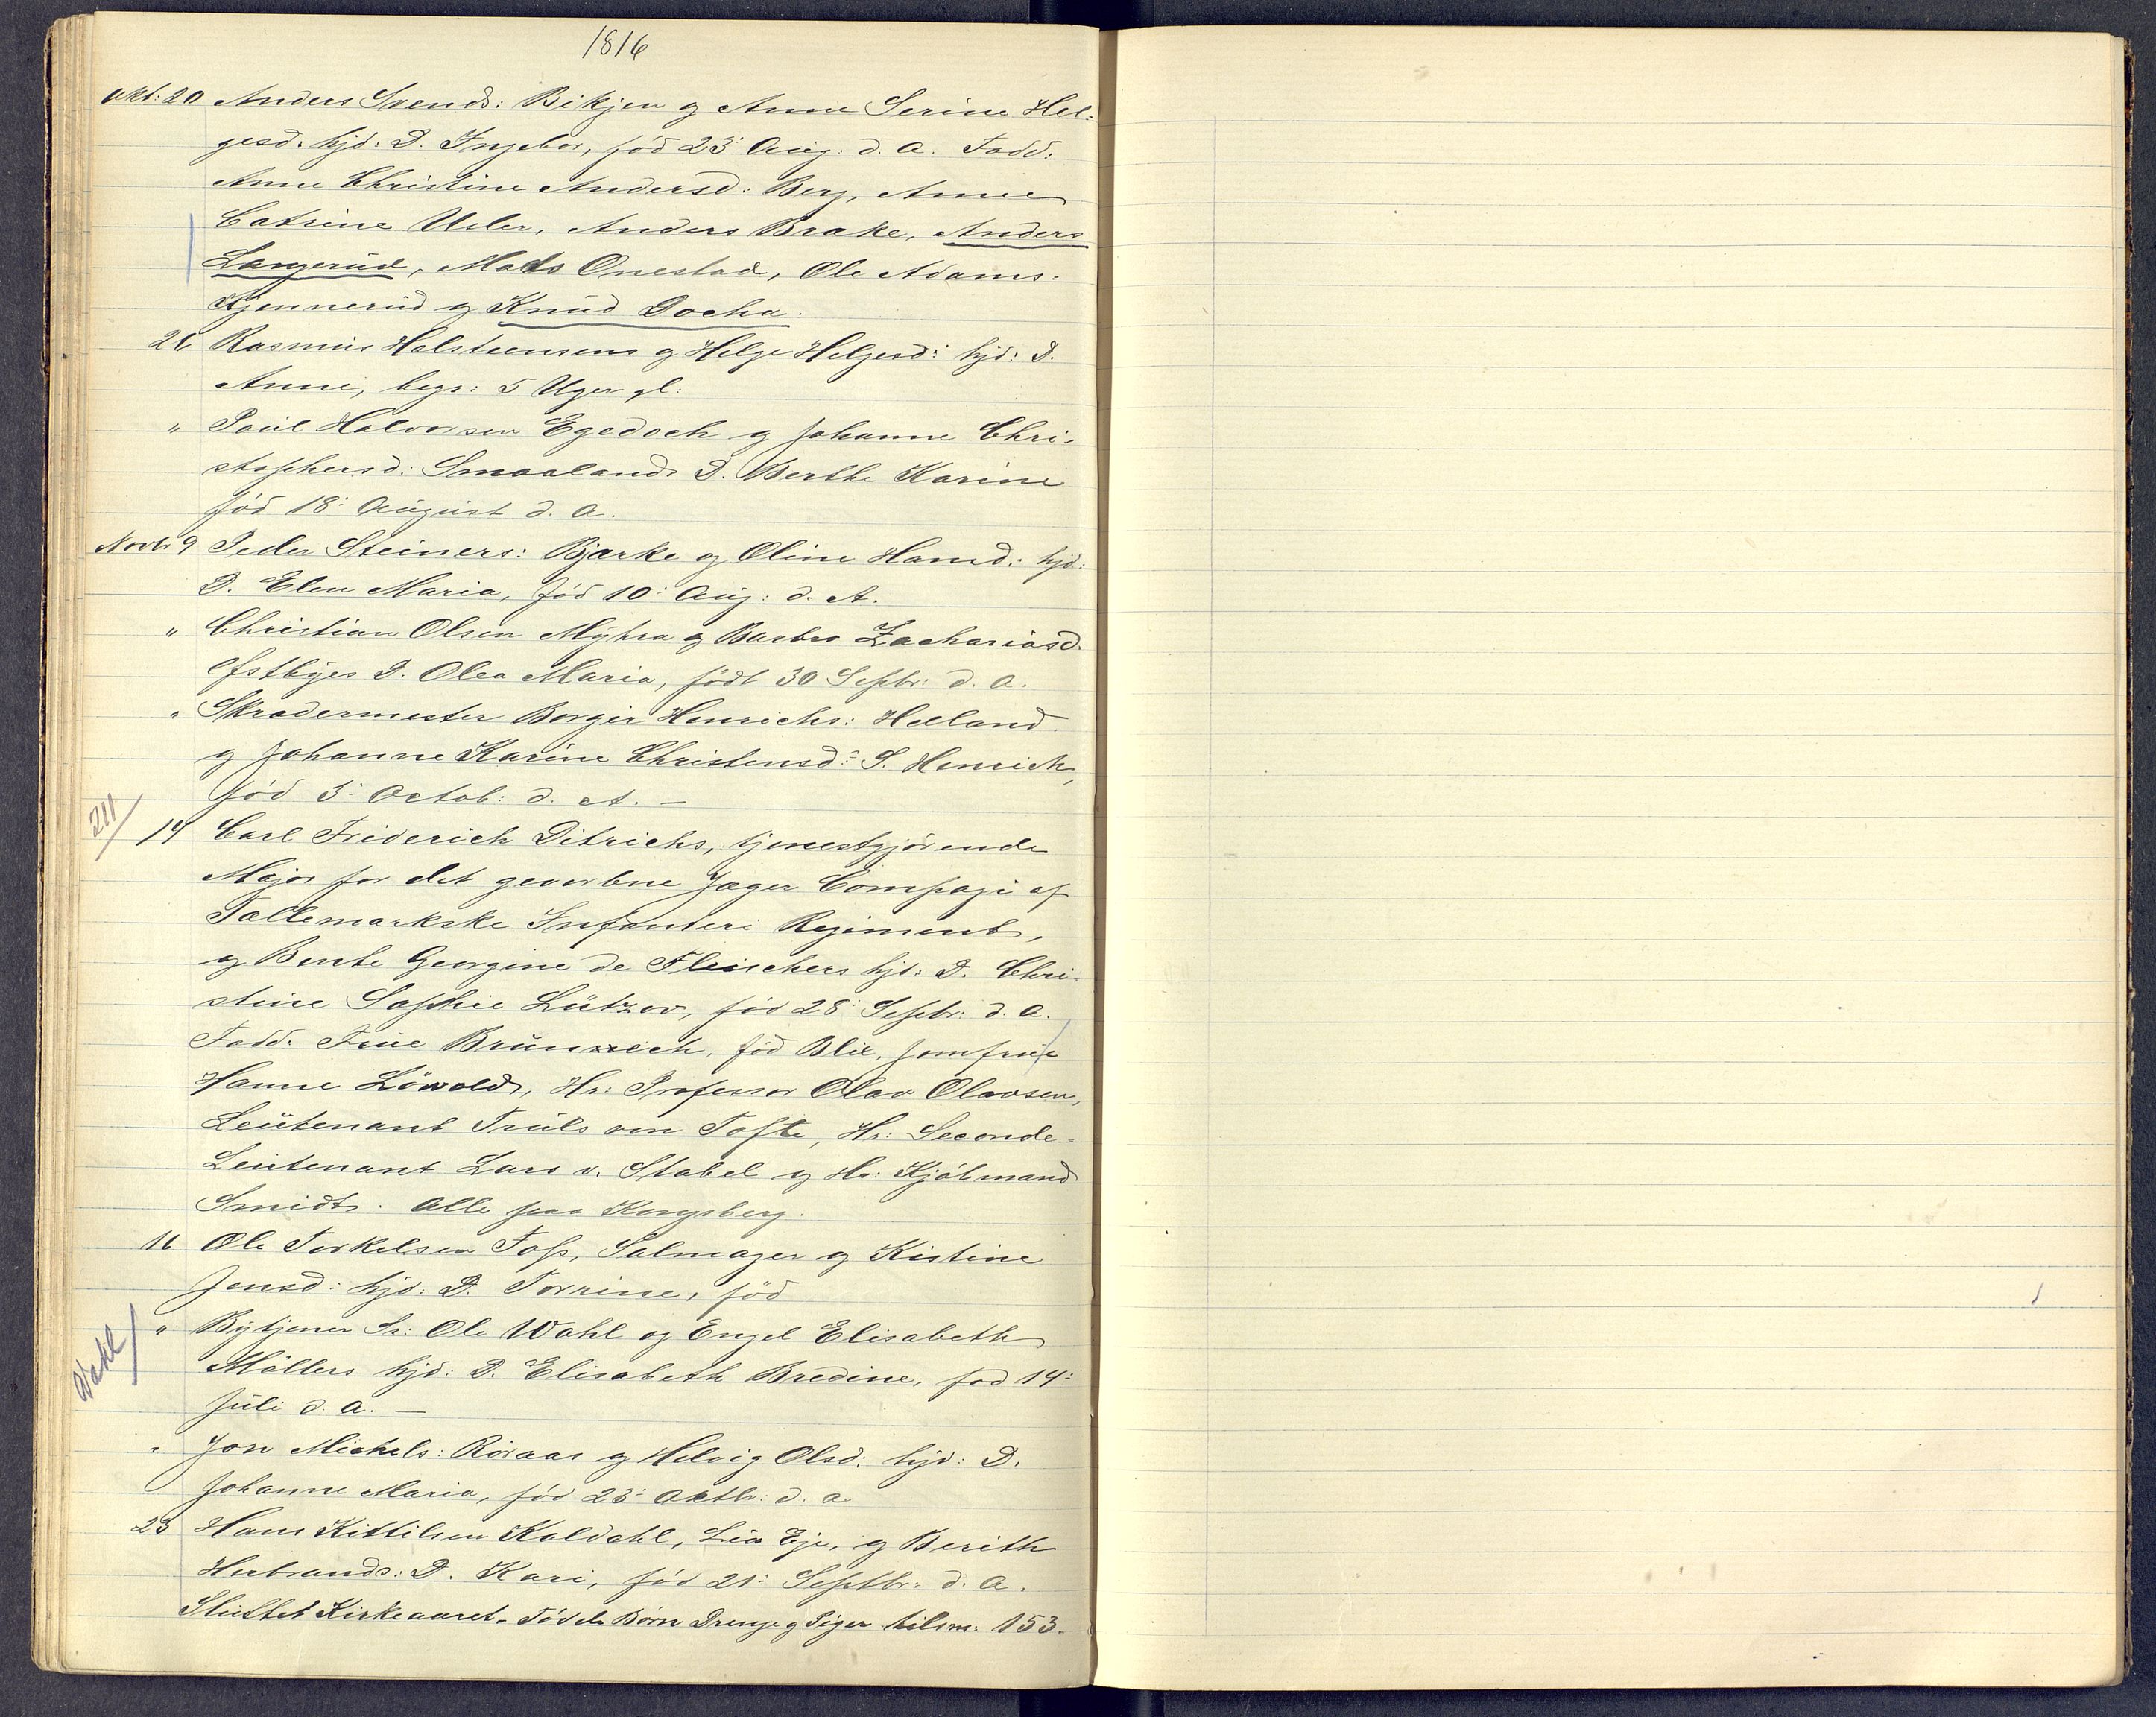 1816
Okt: 20 Anders Svends: Bikjen og Anne Serine Hel-
gesd. hjd: D. Ingebor, fød 23: Aug. d. A. Fadd.
Anne Christine Andersd: Berg, Anne
Catrine Usler, Anders Brake, Anders
Langerud, Mads Onestad, Ole Adams:
Kjennerud og Knud Docka.
26 Rasmus Halsteensens og Helge Helgesd: hjd: D.
Anne, begr: 5 Uger gl:
" Poul Halvorsen Egedock og Johanne Chri-
stophersd: Smaalands D. Berthe Karine
fød 18: August d. A.
Novbr 9 Peder Steiners: Bjerke og Oline Hansd: hjd:
D. Elen Maria, fød 10: Aug: d. A.
" Christian Olsen Myhra og Barbro Zachariasd.
Østbyes D. Olea Maria, født 30 Septbr: d. A.
" Skradermester Borger Henrichs: Helland
og Johanne Karine Christensd: S. Henrich,
fød 3: Octob: d. A. —
211/ 14 Carl Friderich Ditrichs, tjenestgjørende
Major for det gevorbne Jæger Compagi af
Tellemarkske Infanteri Regiment,
og Bente Georgine de Fleischers hjd: D. Chri-
stine Sophie Lützow, fød 28: Septbr: d. A.
Fadd. Frue Brünnech, fød Blix, Jomfrue
Hanne Løwold, Hr: Professor Olav Olavsen,
Leutenant Truls von Tofte, Hr: Seconde-
Leutenant Lars v. Stabel og Hr: Kjøbmand
Smidt. Alle paa Kongsberg.
16 Ole Torkelsen Foss, Salmager og Kistine
Jensd: hjd: D. Torrine, fød
Wahl/ " Bytjener Sr: Ole Wahl og Engel Elisabeth
Møllers hjd: D. Elisabeth Bredine, fød 14:
Juli d. A. —
" Jon Michels: Røraas og Helvig Olsd: hjd: D.
Johanne Maria, fød 23: Octbr: d. A
23 Hans Kittilsen Koldahl, Lia Eje, og Berith
Herbrands: D. Kari, fød 21: Septbr: d. A.
Sluttet Kirkeaaret. Fødde Børn Drenge og Piger tilsm: 153.